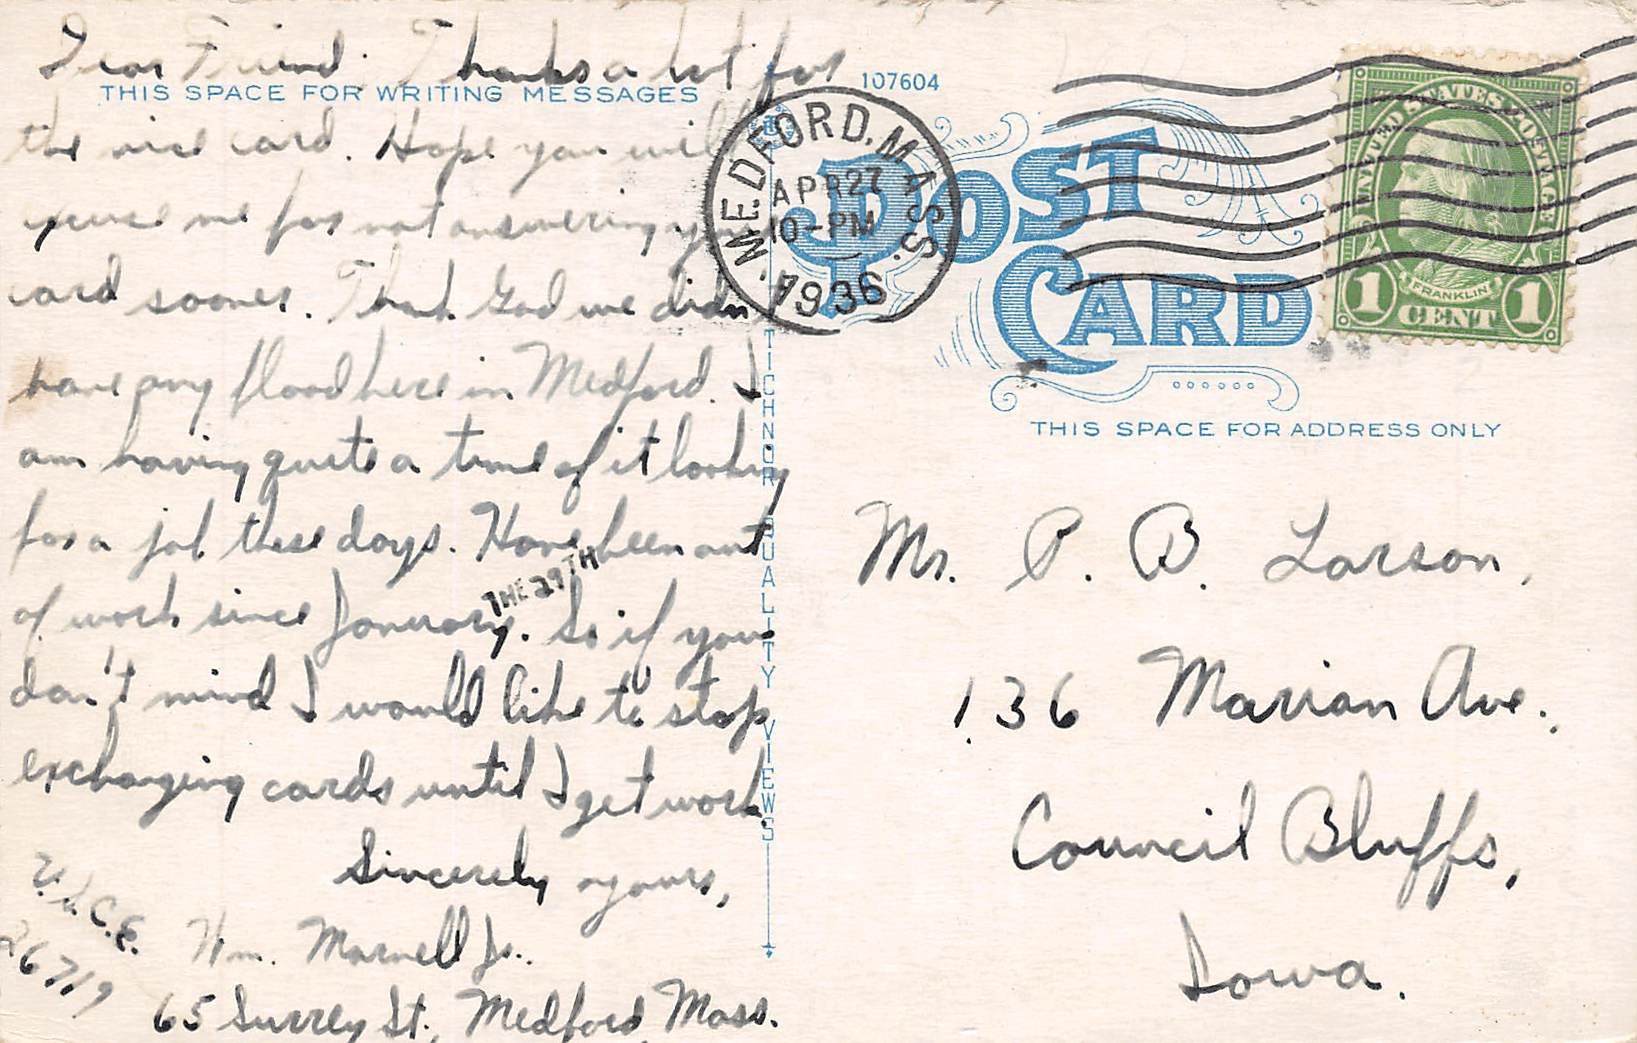 Dear Friend. Thanks a lot for
THIS SPACE FOR WRITING MESSAGES
the nice card. Hope you will
excuse me for not answering your
card sooner. Thank God we didn't
have any flood here in Medford. I
am having quite a time of it looking
for a job these days. Have been out
THE 29TH
of work since January. So if you
don't mind I would like to stop
exchanging cards until I get work.
Sincerely yours,
Wm. Marnell Jr.
65 Surrey St., Medford, Mass.
U.S.C.E.
26719
TICHNOR QUALITY VIEWS
107604
MEDFORD, MASS.
APR 27
10-PM
1936
POST
CARD
UNITED STATES POSTAGE
FRANKLIN
1 CENT 1
THIS SPACE FOR ADDRESS ONLY
Mr. P. B. Larson,
136 Marian Ave.,
Council Bluffs,
Iowa.